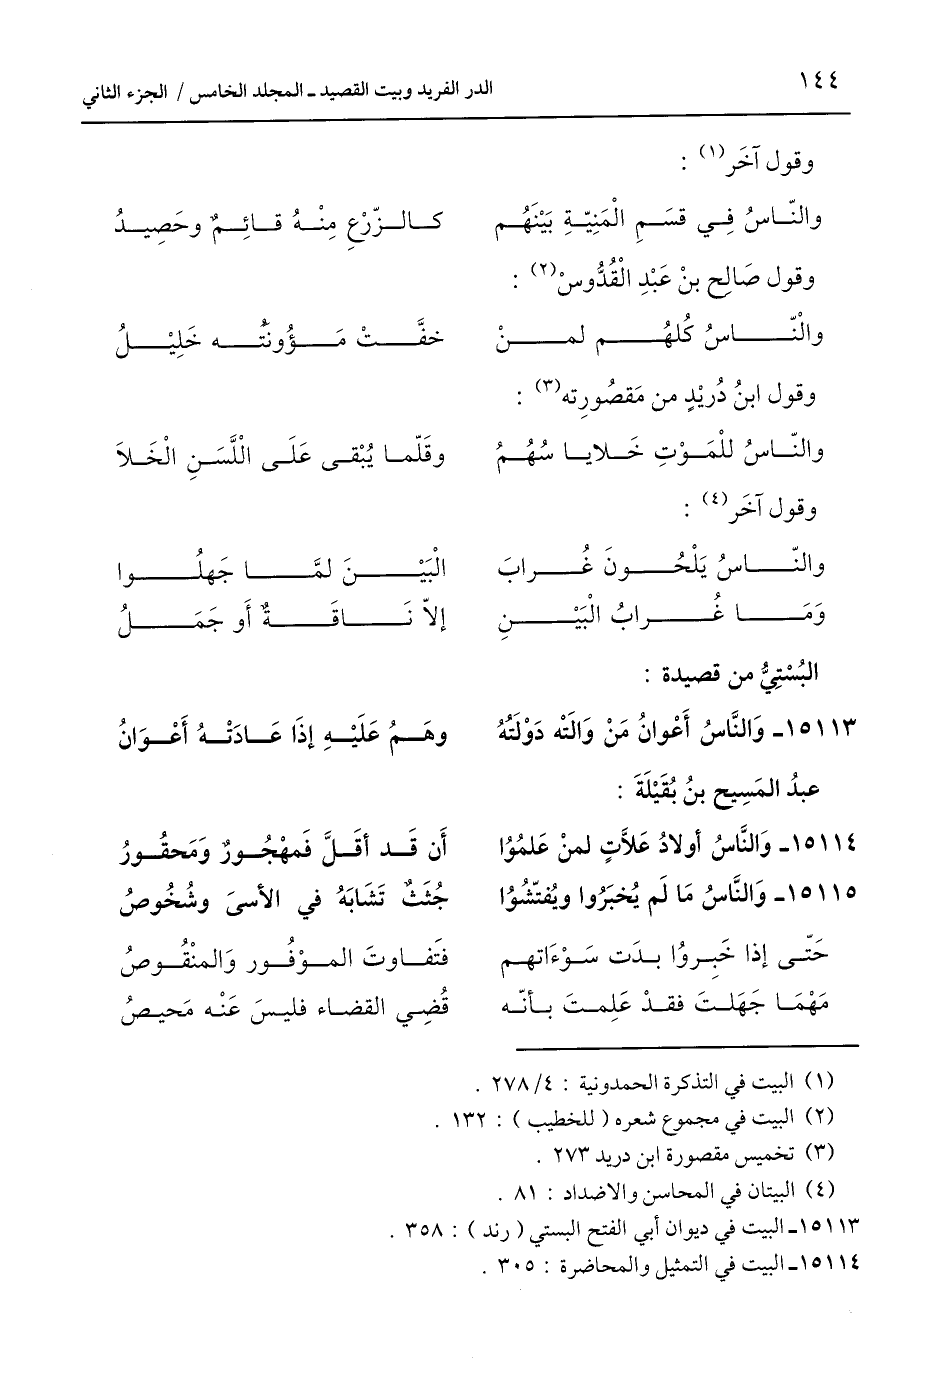 ١٤٤ الدر الفريد وبيت القصيد ـ المجلد الخامس / الجزء الثاني
وقول آخَر(١) :
والنّاسُ فِي قسَمِ الْمَنِيّةِ بَيْنَهُم كالزّرْعِ مِنْهُ قائِمٌ وحَصِيدُ
وقول صَالِح بنْ عَبْدِ الْقُدُّوسْ(٢) :
والْنّاسُ كُلهُم لمنْ خفَّتْ مَؤُونتُه خَلِيْلُ
وقول ابنُ دُرَيْدٍ من مَقصُورِته(٣) :
والنّاسُ للْمَوْتِ خَلايا سُهُمُ وقَلّما يُبْقى عَلَى الْلَّسَنِ الْخَلاَ
وقول آخَر(٤) :
والنّاسُ يَلْحُونَ غُرابَ الْبَيْنَ لمَّا جَهلُوا
وَمَا غُرابُ الْبَيْنِ إلاّ نَاقَةٌ أو جَمَلُ
البُسْتِيُّ من قصيدة :
١٥١١٣ـ وَالنَّاسُ أَعْوانُ مَنْ وَالَتْه دَوْلَتُهُ وهَمُ عَلَيْهِ إذَا عَادَتْهُ أَعْوَانُ
عبدُ المَسِيح بنُ بُقَيْلَةَ :
١٥١١٤ـ وَالنَّاسُ أولادُ عَلاَّتٍ لمنْ عَلمُوْا أَن قَد أقَلَّ فَمهْجُورٌ وَمَحقُورُ
١٥١١٥ـ وَالنَّاسُ مَا لَم يُخبَرُوا ويُفتّشُوْا جُثَثٌ تَشَابَهُ في الأسىَ وشُخُوصُ
حَتّى إذا خَبِروُا بدَت سَوْءَاتهم فَتفاوتَ الموْفُور وَالمنْقُوصُ
مَهْمَا جَهَلتَ فقدْ عَلِمتَ بأنّه قُضِي القضَاء فليسَ عَنْه مَحيصُ
(١) البيت في التذكرة الحمدونية : ٤/ ٢٧٨ .
(٢) البيت في مجموع شعره ( للخطيب ) : ١٣٢ .
(٣) تخميس مقصورة ابن دريد ٢٧٣ .
(٤) البيتان في المحاسن والاضداد : ٨١ .
١٥١١٣ـ البيت في ديوان أبي الفتح البستي ( رند ) : ٣٥٨ .
١٥١١٤ـ البيت في التمثيل والمحاضرة : ٣٠٥ .